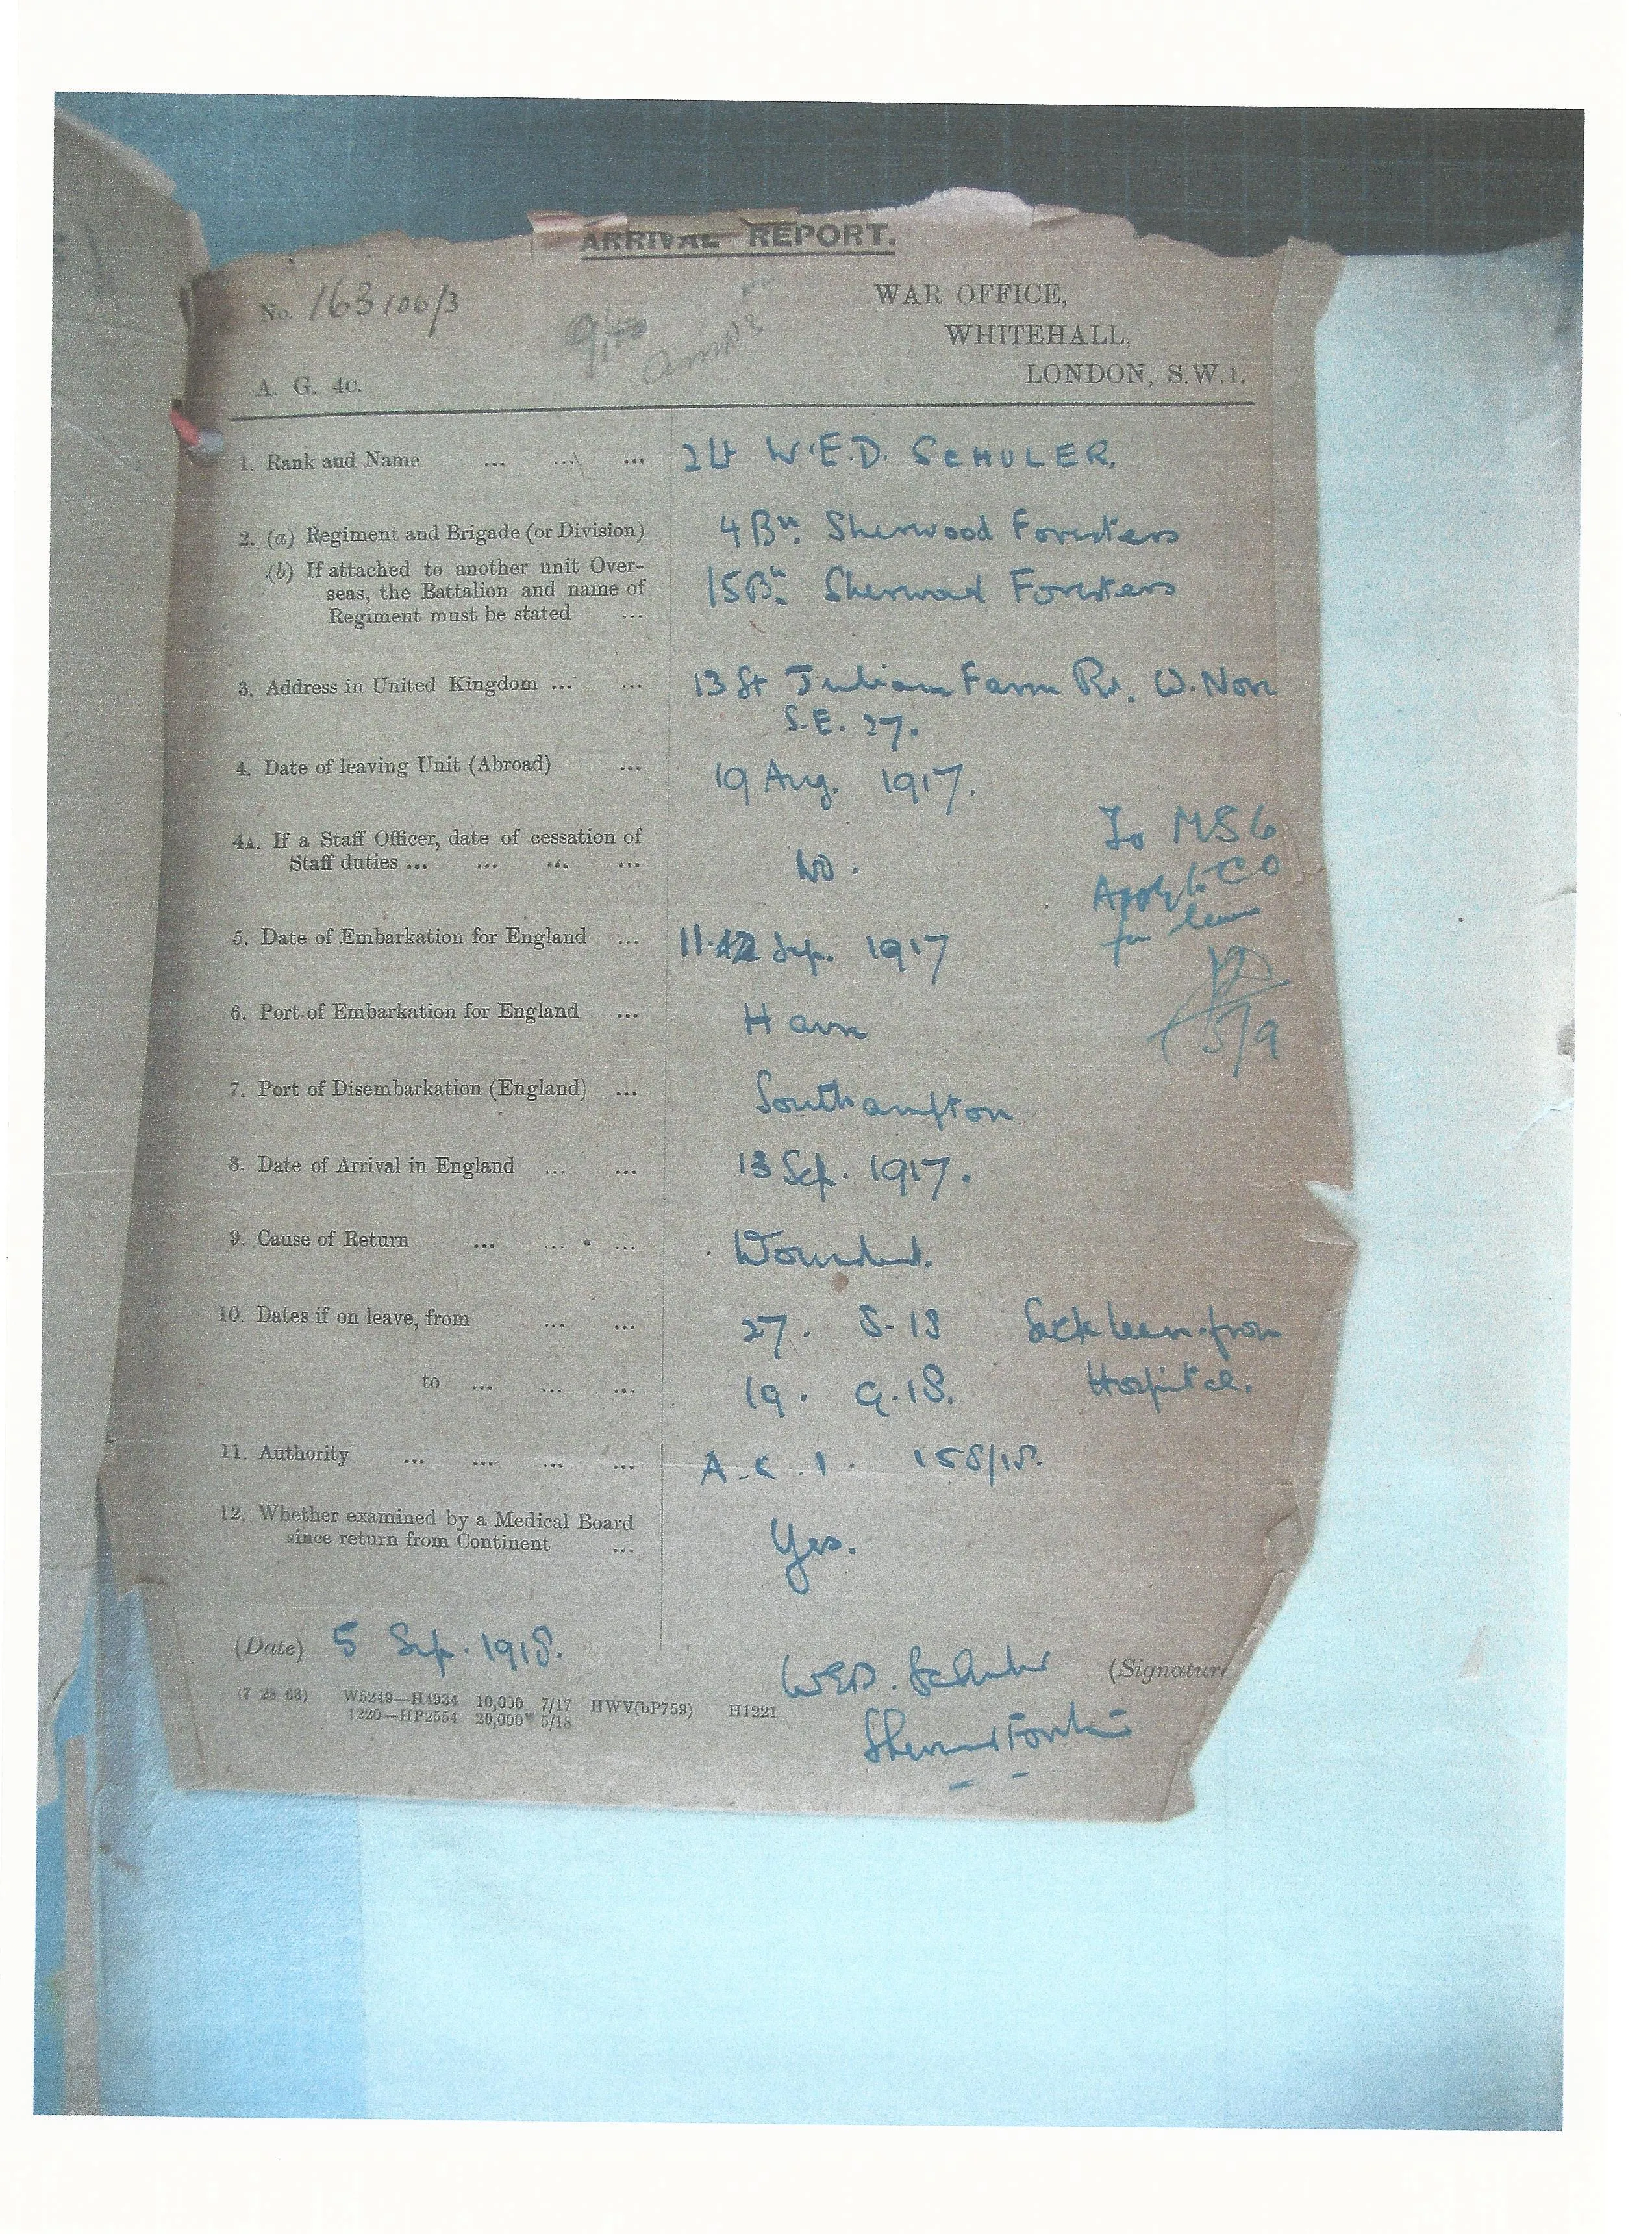 ARRIVAL REPORT.
No. 163106/3
WAR OFFICE,
WHITEHALL,
LONDON, S.W.1.
A. G. 4c.
1. Rank and Name ... ... ... 2Lt W.E.D. SCHULER.
2. (a) Regiment and Brigade (or Division) 4Bn. Sherwood Foresters
(b) If attached to another unit Over-
seas, the Battalion and name of 15Bn. Sherwood Foresters
Regiment must be stated ...
3. Address in United Kingdom ... ... 13 St Julians Farm Rd. W. Nor
S.E. 27.
4. Date of leaving Unit (Abroad) ... 19 Aug. 1917.
To MS6
4A. If a Staff Officer, date of cessation of
Staff duties ... ... ... ... No.
Apply to CO
for leave
5. Date of Embarkation for England ... 11.12 Sep. 1917
6. Port of Embarkation for England ... Havre
5/9
7. Port of Disembarkation (England) ... Southampton
8. Date of Arrival in England ... ... 13 Sep. 1917.
9. Cause of Return ... ... ... Wounded.
10. Dates if on leave, from ... ... 27. 8.18 Sick leave from
to ... ... ... 19. 9.18. Hospital.
11. Authority ... ... ... ... A.C.I. 158/18.
12. Whether examined by a Medical Board
since return from Continent ... Yes.
(Date) 5 Sep. 1918.
WED. Schuler (Signature
(7 28 63) W5249—H4934 10,000 7/17 HWV(bP759) H1221
1220—HP2554 20,000 5/18
Sherwood Foresters